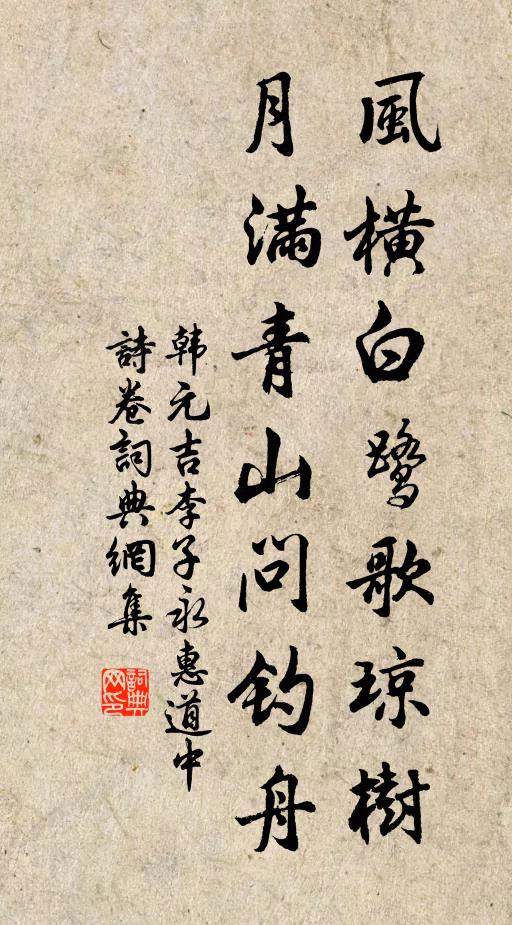 風橫白鷺歌琼樹
月滿青山問釣舟
韩元吉李子永惠道中
詩卷詞典網集
詞典网印